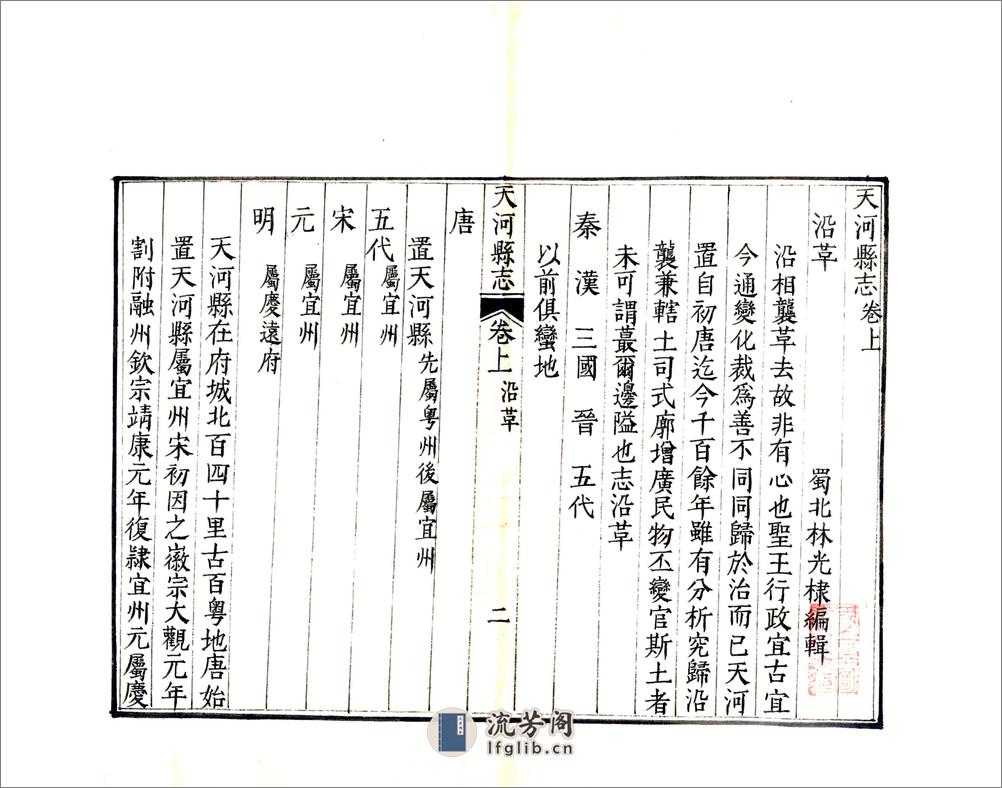 天河縣志卷上
蜀北林光棣編輯
沿革
沿相襲革去故非有心也聖王行政宜古宜
今通變化裁爲善不同同歸於治而已天河
置自初唐迄今千百餘年雖有分析究歸沿
襲兼轄土司式廓增廣民物丕變官斯土者
未可謂蕞爾邊隘也志沿革
秦 漢 三國 晉 五代
以前俱蠻地
天河縣志 卷上 沿革 二
唐
置天河縣先屬粤州後屬宜州
五代屬宜州
宋 屬宜州
元 屬宜州
明 屬慶遠府
天河縣在府城北百四十里古百粤地唐始
置天河縣屬宜州宋初因之徽宗大觀元年
割附融州欽宗靖康元年復隸宜州元屬慶
流芳阁
lfglib.cn